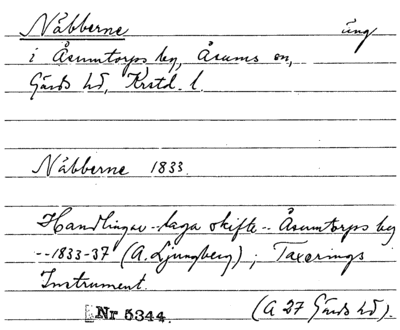 Nåbberne äng
i Åsumtorps by, Åsums sn,
Gärds hd, Krstd. l.
Nåbberne 1833.
Handlingar -- laga skifte -- Åsumtorps by
-- 1833-37 (A. Ljungberg); Taxerings
Instrument.
(A 27 Gärds hd).
Nr 5344